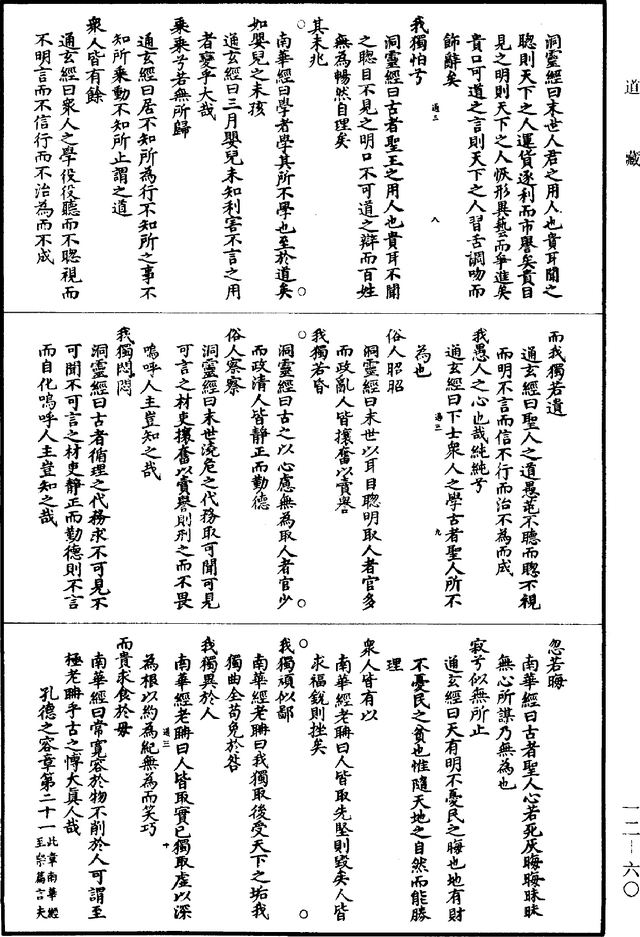 道藏
洞靈經曰末世人君之用人也貴耳聞之
聰則天下之人運貨逐利而市譽矣貴目
見之明則天下之人恢形異藝而爭進矣
貴口可道之言則天下之人習舌調吻而
飾辭矣
我獨怕兮
洞靈經曰古者聖王之用人也貴耳不聞
之聰目不見之明口不可道之辯而百姓
無為暢然自理矣
其未兆
南華經曰學者學其所不學也至於道矣
如嬰兒之未孩
通玄經曰三月嬰兒未知利害不言之用
者變乎大哉
乘乘兮若無所歸
通玄經曰居不知所為行不知所之事不
知所乘動不知所止謂之道
衆人皆有餘
通玄經曰衆人之學役役聽而不聰視而
不明言而不信行而不治為而不成
而我獨若遺
通玄經曰聖人之道愚芚不聽而聰不視
而明不言而信不行而治不為而成
我愚人之心也哉純純兮
通玄經曰下士衆人之學古者聖人所不
為也
俗人昭昭
洞靈經曰末世以耳目聰明取人者官多
而政亂人皆攘奮以賣譽
我獨若昏
洞靈經曰古之以心慮無為取人者官少
而政清人皆靜正而勤德
俗人察察
洞靈經曰末世澆危之代務取可聞可見
可言之材吏攘奮以賣譽則刑之而不畏
嗚呼人主豈知之哉
我獨悶悶
洞靈經曰古者循理之代務求不可見不
可聞不可言之材吏靜正而勤德則不言
而自化嗚呼人主豈知之哉
忽若晦
南華經曰古者聖人心若死灰晦晦昧昧
無心所謀乃無為也
寂兮似無所止
通玄經曰天有明不憂民之晦也地有財
不憂民之貧也惟隨天地之自然而能勝
理
衆人皆有以
南華經老聃曰人皆取先堅則毀矣人皆
求福銳則挫矣
我獨頑似鄙
南華經老聃曰我獨取後受天下之垢我
獨曲全苟免於咎
我獨異於人
南華經老聃曰人皆取實己獨取虛以深
為根以約為紀無為而笑巧
而貴求食於母
南華經曰常寬容於物不削於人可謂至
極老聃乎古之博大真人哉
孔德之容章第二十一此章南華經至宗篇言夫
一二－六〇